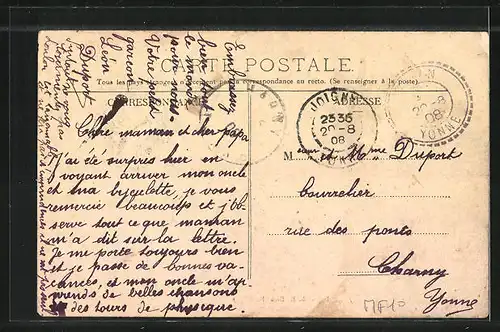 CARTE POSTALE
Tous les pays étrangers n'acceptent pas la correspondance au recto. (Se renseigner à la poste).
CORRESPONDANCE
ADRESSE
Chère maman et cher papa
J'ai été surpris hier en
voyant arriver mon oncle
et ma bicyclette, je vous
remercie beaucoups et j'ob-
serve tout ce que maman
m'a dit sur la lettre.
Je me porte toujours bien
et je passe de bonnes va-
cances, et mon oncle m'ap-
prends de belles chansons
et des tours de physique.
Embrassez
bien tout
le monde
pour nous.
Votre petit
garçon
Léon
Duport
JOIGNY
2336
20-8
08
20-8
08
YONNE
M et Mme Duport
Courrelier
rue des ponts
Charny
Yonne
MF10